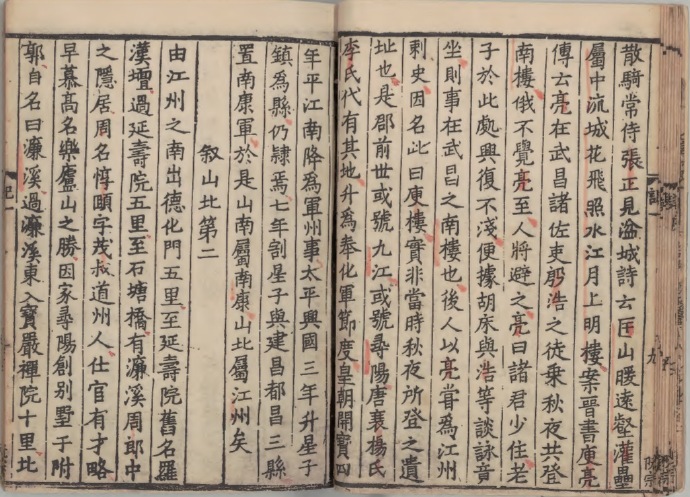 散騎常侍張正見湓城詩云匡山暖遠壑灌壘
屬中流城花飛照水江月上明樓案晉書庾亮
傳云亮在武昌諸佐吏殷浩之徒乗秋夜共登
南樓俄不覺亮至人將避之亮曰諸君少住老
子於此處興復不淺便據胡床與浩等談詠竟
坐則事在武昌之南樓也後人以亮嘗爲江州
刺史因名此曰庾樓實非當時秋夜所登之遺
址也是郡前世或號九江或號尋陽唐襄楊氏
李氏代有其地升爲奉化軍節度皇朝開寶四
年平江南降爲軍州事太平興國三年升星子
鎮爲縣仍隷焉七年割星子與建昌都昌三縣
置南康軍於是山南屬南康山北屬江州矣
叙山北第二
由江州之南出德化門五里至延壽院舊名羅
漢壇過延壽院五里至石塘橋有濂溪周郎中
之隱居周名惇頤字茂叔道州人仕官有才略
早慕高名樂廬山之勝因家尋陽創别墅于附
郭自名曰濂溪過濂溪東入寶嚴禪院十里北
記一